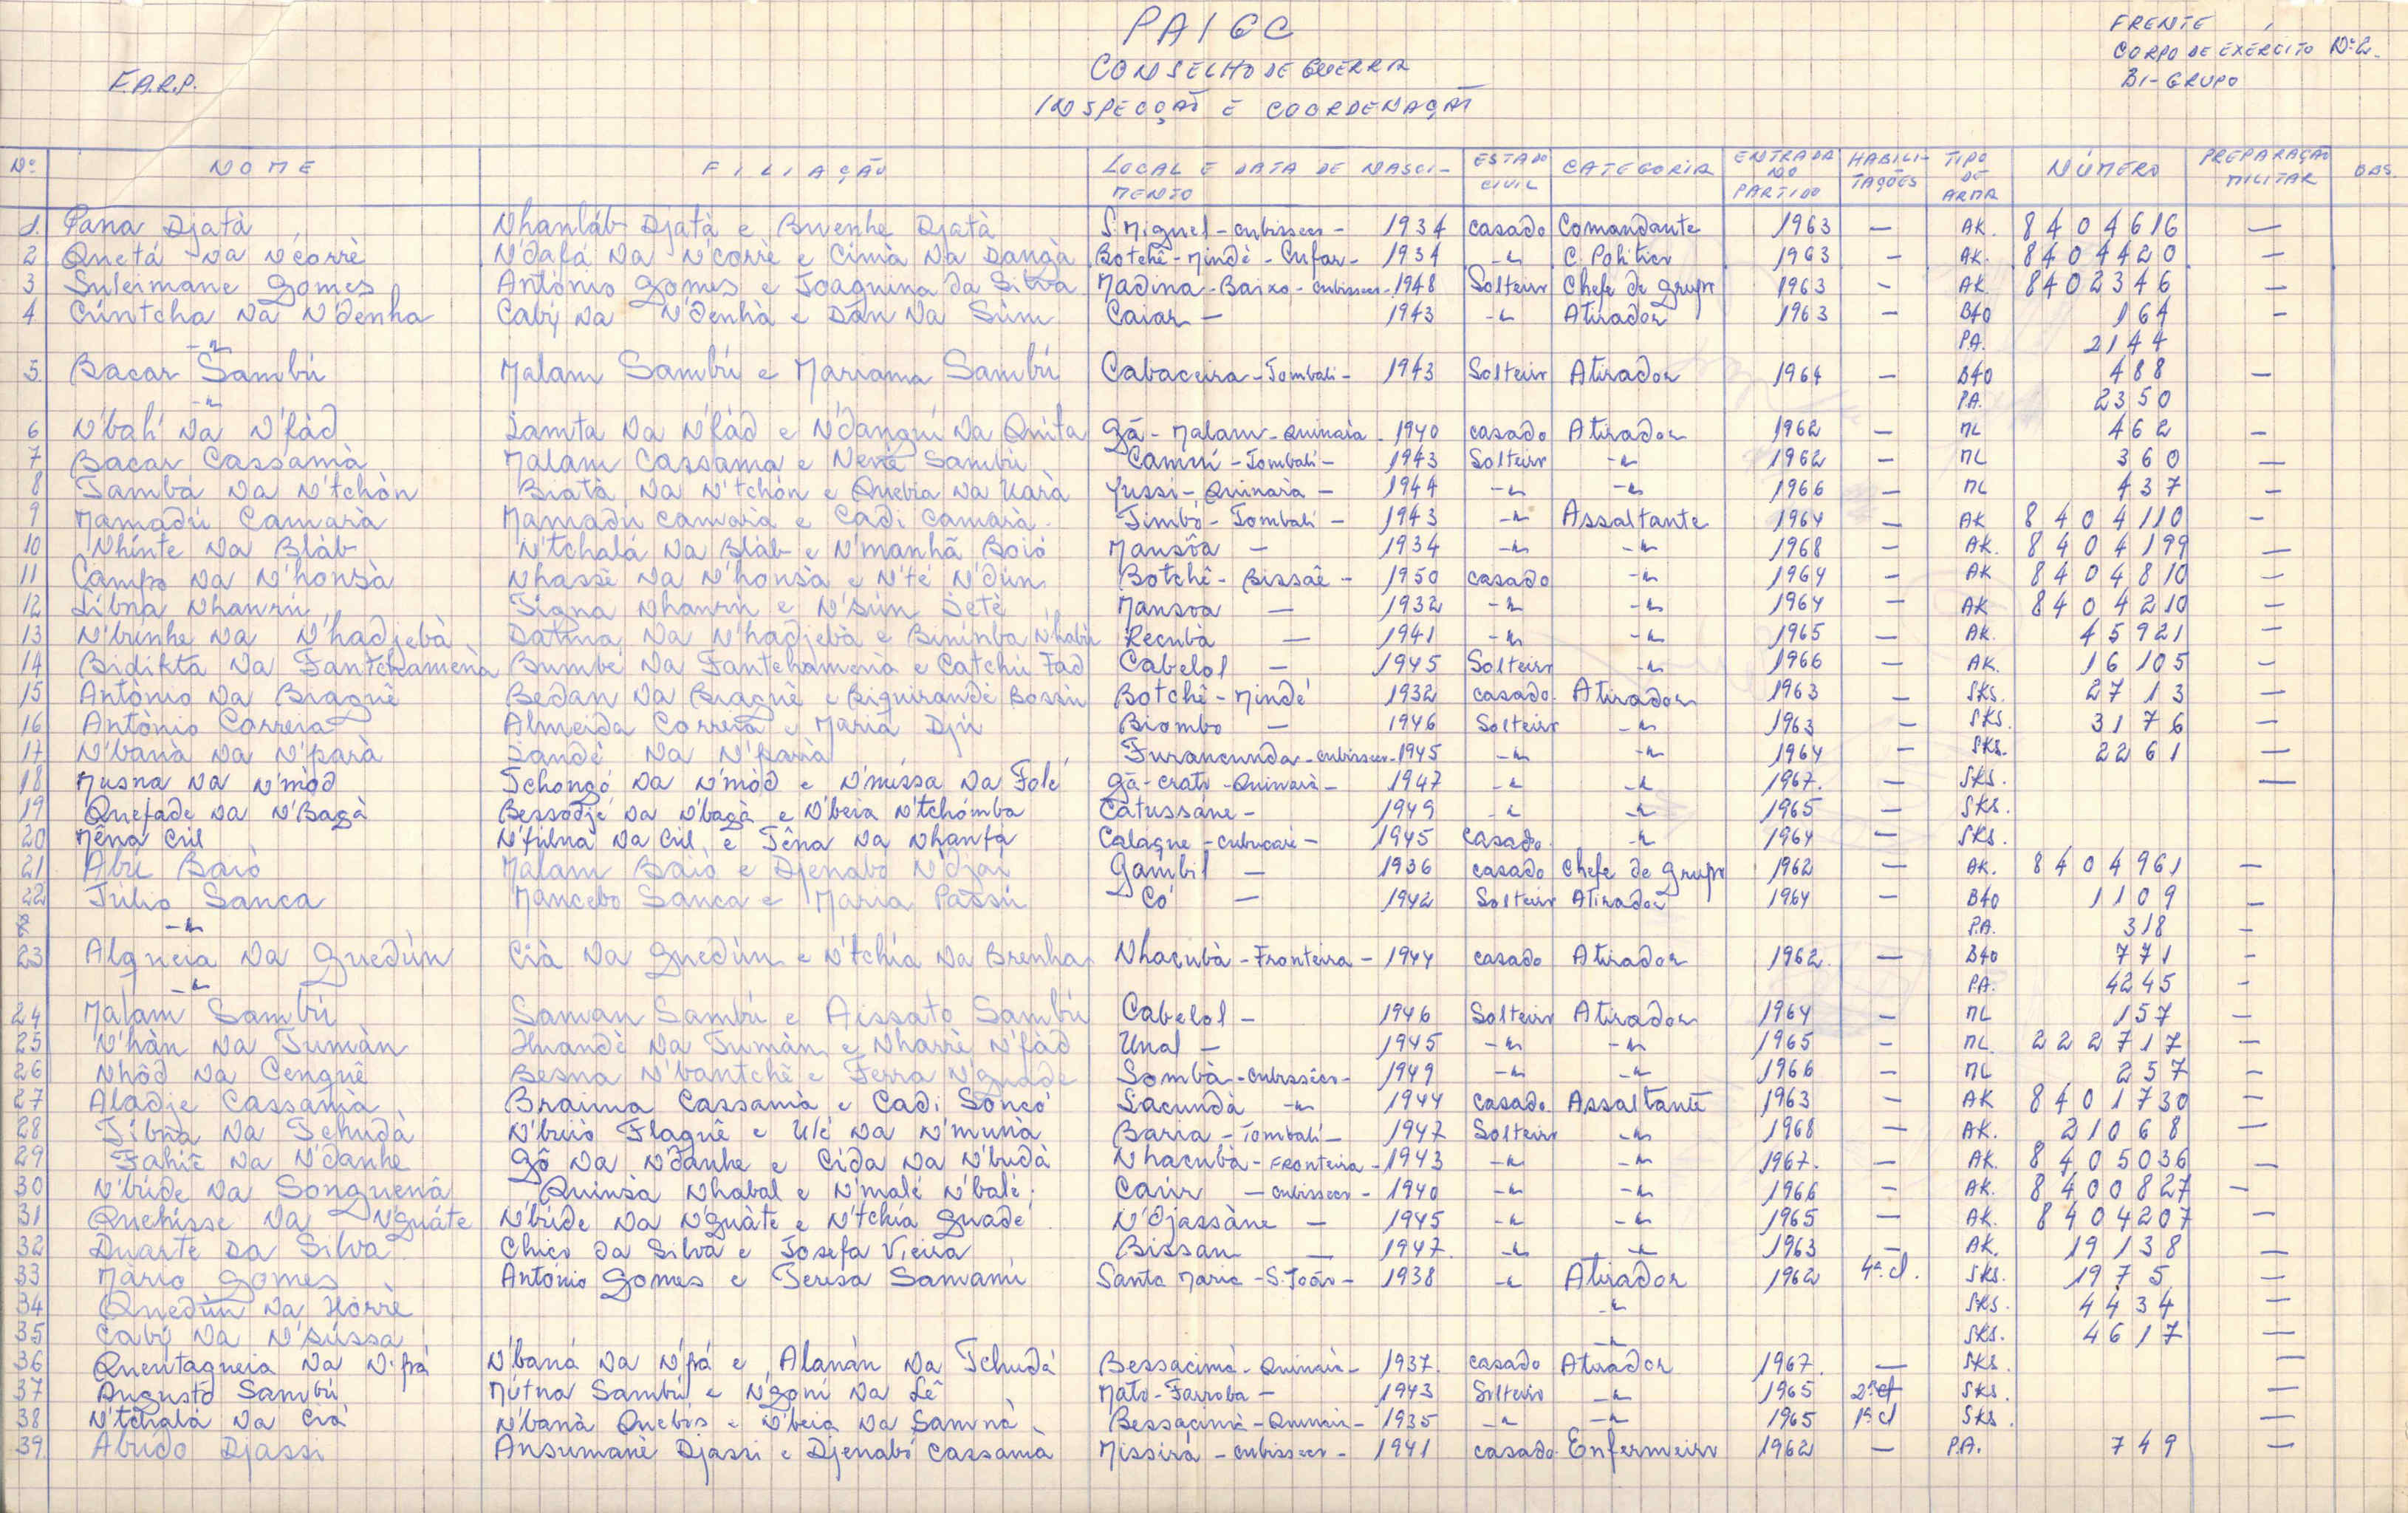 PAIGC
FRENTE
CONSELHO DE GUERRA
CORPO DE EXÉRCITO Nº 2.
F.A.R.P.
BI-GRUPO
INSPECÇÃO E COORDENAÇÃO
Nº NOME FILIAÇÃO LOCAL E DATA DE NASCIMENTO ESTADO CIVIL CATEGORIA ENTRADA NO PARTIDO HABILITAÇÕES TIPO DE ARMA NÚMERO PREPARAÇÃO MILITAR OBS.
1. Pana Djatà Nhanláb Djatà e Buenhe Djatà S. Miguel - cubisseco - 1934 casado Comandante 1963 — AK. 8404616 —
2 Quetá Na N'corrè N'dafá Na N'corrè e Cimà Na Dangà Botchê - Mindè - Cufar - 1934 -"- C. Político 1963 - AK. 8404420 —
3 Suleimane Gomes António Gomes e Joaquina da Silva Madina - Baixo - cubisseco - 1948 Solteiro Chefe de grupo 1963 - AK. 8402346 —
4 Cúntcha Na N'denha Cabý Na N'denhà e Dan Na Sùm Caiar — 1943 -"- Atirador 1963 - B40 164 —
-"- PA. 2144
5. Bacar Sambú Malam Sambú e Mariama Sambú Cabaceira - Tombali - 1943 Solteiro Atirador 1964 - B40 488 —
-"- PA. 2350
6 N'bali Na N'fàd Lamta Na N'fád e N'dangui Na Quita Gã - Malam - Quinara - 1940 casado Atirador 1962 — ML 462 —
7 Bacar Cassamà Malam Cassama e Nene Sambù Camui - Tombali - 1943 Solteiro -"- 1962 - ML 360 —
8 Tambá Na N'tchòn Biatà Na N'tchón e Quebia Na Uarà Jussi - Quinara - 1944 -"- -"- 1966 - ML 437 —
9 Mamadú Camarà Mamadù Camarà e Cadi Camarà. Timbó - Tombali - 1943 -"- Assaltante 1964 — AK 8404110 —
10 Nhínte Na Blàb N'tchalá Na Blàb e N'manhã Boió Mansôa — 1934 -"- -"- 1968 — AK. 8404199 —
11 Campo Na N'honsà Nhassê Na N'honsà e N'té N'dún Botchê - Bissaê - 1950 casado -"- 1964 — AK 8404810 —
12 Libna Nhanrù Signa Nhanrù e N'sún Setè Mansoa — 1932 -"- -"- 1964 — AK 8404210 —
13 N'brinhe Na N'hadjebà Datma Na N'hadjebà e Bininba N'habù Recubà — 1941 -"- -"- 1965 — AK. 45921 —
14 Bidikta Na Fantchamenà Bumbé Na Fantchamenà e Catchu Fàd Cabelol — 1945 Solteiro -"- 1966 — AK. 16105 —
15 Antònio Na Biaguê Bedan Na Biaguê e Biguirandè Bossùn Botchê - Mindé 1932 casado. Atirador 1963 — SKS. 2713 —
16 Antònio Correia Almeida Correia e Maria Djù Biombo — 1946 Solteiro -"- 1963 — SKS. 3176 —
17 N'banà Na N'parà Sandé Na N'parà Furancunda - cubisseco - 1945 -"- -"- 1964 — SKS. 2261 —
18 Musna Na N'mòd Tchongó Na N'mòd e N'mússa Na Folé Gã - crato - Quinarà - 1947 -"- -"- 1967. — SKS. —
19 Quefade Na N'Bagà Bessodjé Na N'bagà e N'beia N'tchómba Catussane - 1949 -"- -"- 1965 — SKS.
20 Mêna Cúl N'fulna Na Cúl e Têna Na Nhanfa Calaque - cubucaré - 1945 casado. -"- 1964 — SKS.
21 Abù Baiò Malam Baiò e Djenabo N'djai Gambil — 1936 casado Chefe de grupo 1962 — AK. 8404961 —
22 Túlio Sanca Mancebo Sanca e Maria Passú Có — 1942 Solteiro Atirador 1964 — B40 1109 —
-"- PA. 318 —
23 Algueia Na Guedùn Cià Na Guedùn e N'tchia Na Brenha Nhacubà - Fronteira - 1944 casado Atirador 1962. — B40 771 —
-"- PA. 4245 —
24 Malam Sambú Saman Sambú e Aissato Sambú Cabelol - 1946 Solteiro Atirador 1964 — ML 157 —
25 N'hàn Na Tumàn Huandè Na Tumàn e Nharrè N'fàd Unal — 1945 -"- -"- 1965 - ML. 222717 —
26 Nhôd Na Cenguê Besna N'bantchê e Ferra N'guade Sombà - cubisseco - 1949 -"- -"- 1966 — ML 257 —
27 Aladje Cassamà Braima Cassamà e Cadi Soncó Sacundà -"- 1944 casado. Assaltante 1963 — AK 8401730 —
28 Tibna Na Tchudà N'buiò Flaguê e Ulé Na N'munà Baria - Tombali - 1947 Solteiro -"- 1968 — AK. 21068 —
29 Fahiê Na N'danhe Gô Na N'danhe e Cida Na N'budà Nhacubà - FRONTEIRA - 1943 -"- -"- 1967. — AK. 8405036 —
30 N'búde Na Songuenà Quinsà Nhabal e N'malé N'balé. Caiùr - cubisseco - 1940 -"- -"- 1966 — AK. 8400827 —
31 Quehisse Na N'guáte N'búde Na N'guàte e N'tchia Guadé N'Djassàne — 1945 -"- -"- 1965 — AK. 8404207 —
32 Duarte Da Silva Chico da Silva e Josefa Vieira Bissau — 1947. -"- -"- 1963 — AK. 19138 —
33 Màrio Gomes António Gomes e Teresa Samami Santa Maria - S. João - 1938 -"- Atirador 1962 4ª cl. SKS. 1975 —
34 Quedùn Na Horrè -"- SKS. 4434 —
35 Cabý Na N'sússa -"- SKS. 4617 —
36 Quentagueia Na N'frà N'baná Na N'frá e Alanàn Na Tchudá Bessacimà - Quinara - 1937. casado Atirador 1967. — SKS. —
37 Augusto Sambú Mútna Sambú e N'goni Na Lê Mato - Farroba - 1943 Solteiro -"- 1965 2ª cl SKS. —
38 N'tchalá Na Cià N'banà Quebis e N'beia Na Samnà Bessacimà - Quinara - 1935 -"- -"- 1965 1ª cl SKS. —
39. Abúdo Djassi Ansumanè Djassi e Djenabó Cassamà Missirá - cubisseco - 1941 casado. Enfermeiro 1962 — P.A. 749 —